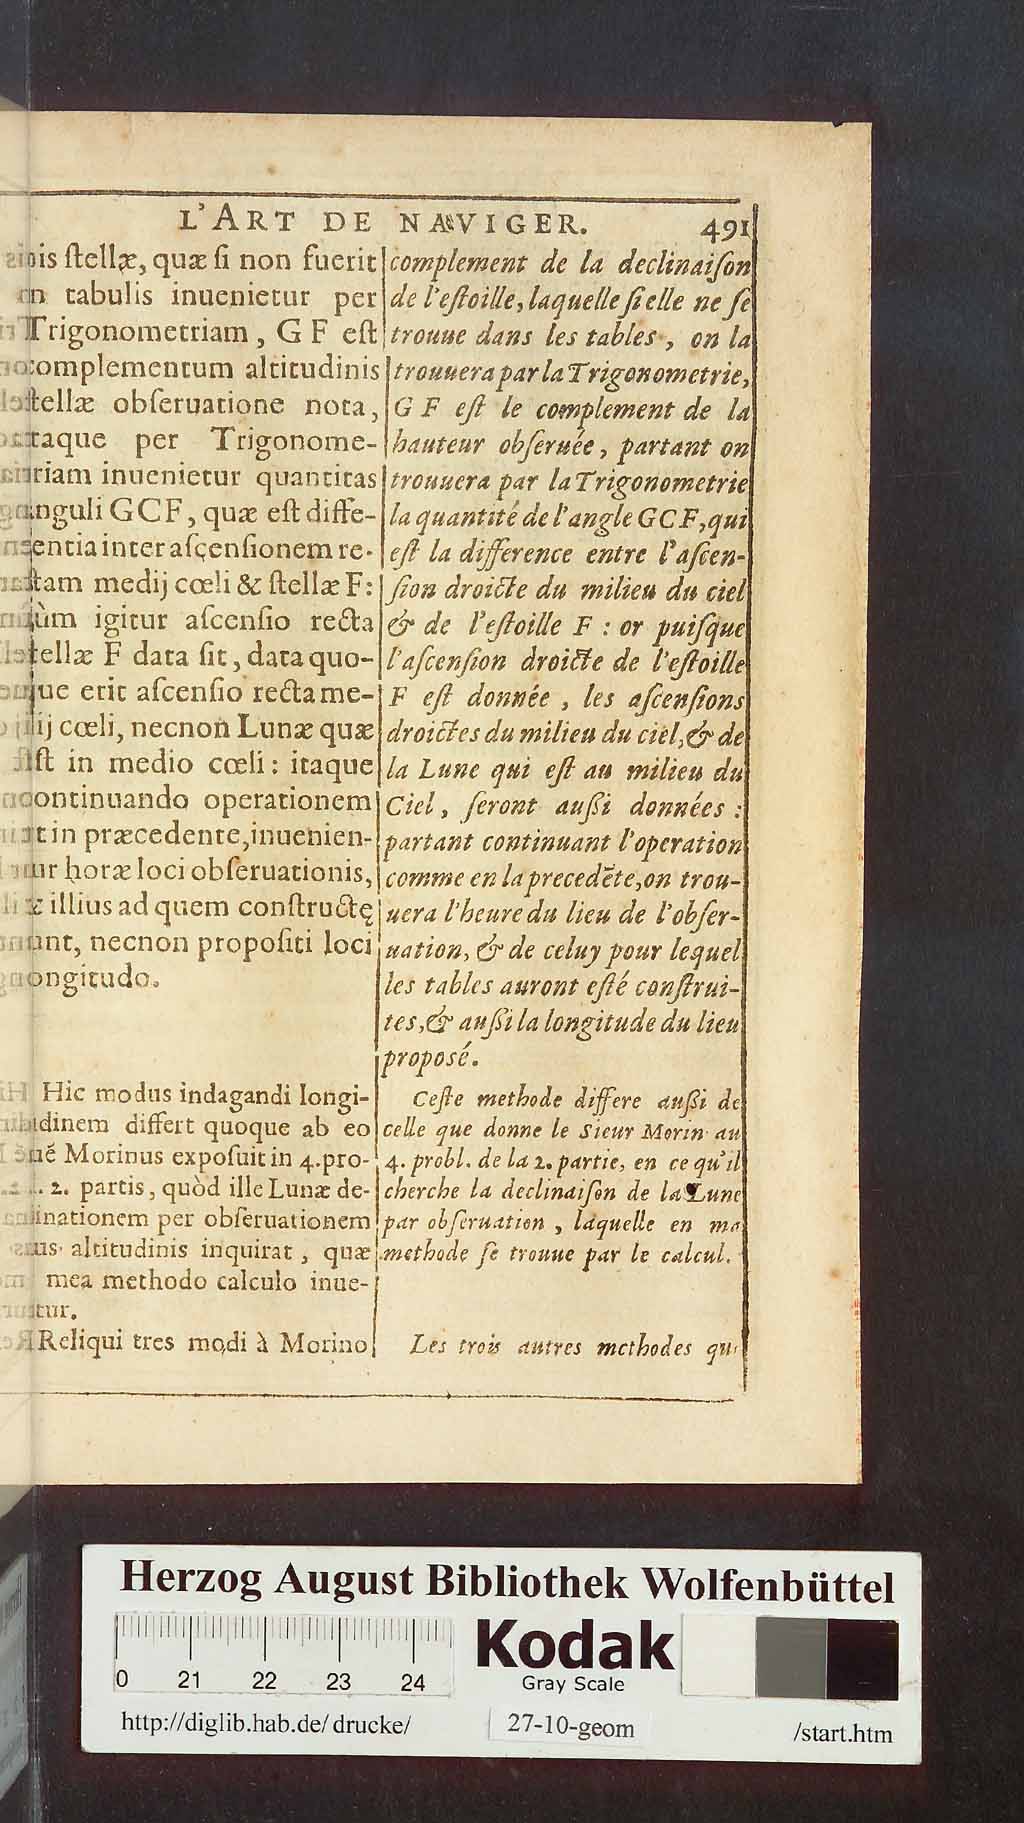 L'ART DE NAVIGER. 491
nis stellæ, quæ si non fuerit
in tabulis inuenietur per
Trigonometriam, G F est
complementum altitudinis
stellæ obseruatione nota,
itaque per Trigonome-
triam inuenietur quantitas
anguli GCF, quæ est diffe-
rentia inter ascensionem re-
ctam medij cœli & stellæ F:
cùm igitur ascensio recta
stellæ F data sit, data quo-
que erit ascensio recta me-
dij cœli, necnon Lunæ quæ
est in medio cœli: itaque
continuando operationem
vt in præcedente, inuenien-
tur horæ loci obseruationis,
& illius ad quem constructę
sunt, necnon propositi loci
longitudo.
Hic modus indagandi longi-
tudinem differt quoque ab eo
quē Morinus exposuit in 4. pro-
2. partis, quòd ille Lunæ de-
clinationem per obseruationem
altitudinis inquirat, quæ
mea methodo calculo inue-
nitur.
Reliqui tres modi à Morino
complement de la declinaison
de l'estoille, laquelle si elle ne se
trouue dans les tables, on la
trouuera par la Trigonometrie,
G F est le complement de la
hauteur obseruée, partant on
trouuera par la Trigonometrie
la quantité de l'angle GCF, qui
est la difference entre l'ascen-
sion droicte du milieu du ciel
& de l'estoille F : or puisque
l'ascension droicte de l'estoille
F est donnée, les ascensions
droictes du milieu du ciel, & de
la Lune qui est au milieu du
Ciel, seront aussi données :
partant continuant l'operation
comme en la precedēte, on trou-
uera l'heure du lieu de l'obser-
uation, & de celuy pour lequel
les tables auront esté construi-
tes, & aussi la longitude du lieu
proposé.
Ceste methode differe aussi de
celle que donne le Sieur Morin au
4. probl. de la 2. partie, en ce qu'il
cherche la declinaison de la Lune
par obseruation, laquelle en ma
methode se trouue par le calcul.
Les trois autres methodes qu
Herzog August Bibliothek Wolfenbüttel
0 21 22 23 24
Kodak
Gray Scale
http://diglib.hab.de/drucke/ 27-10-geom /start.htm